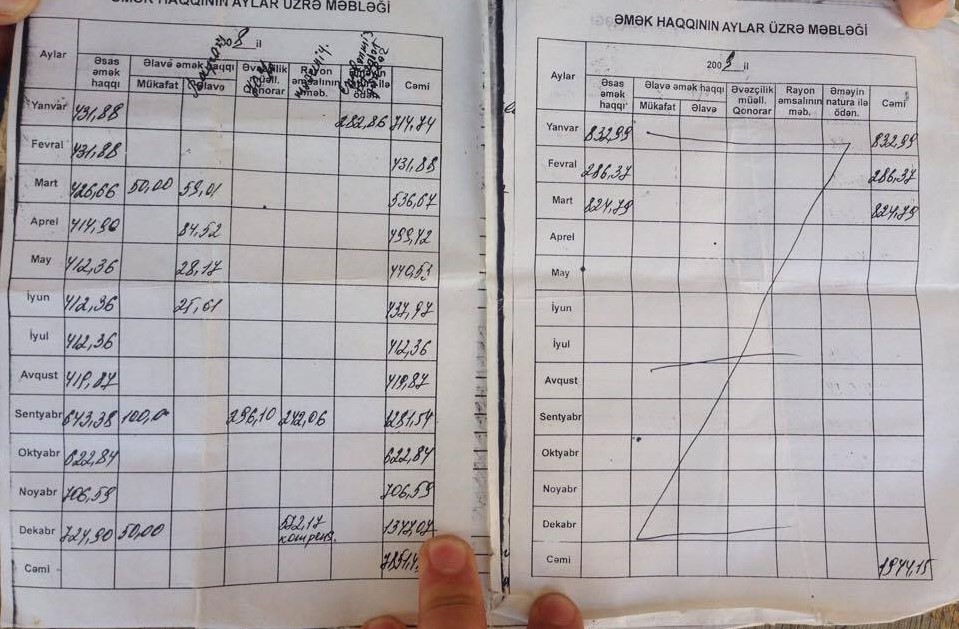 ƏMƏK HAQQININ AYLAR ÜZRƏ MƏBLƏĞİ
2008 il
Aylar Əsas əmək haqqı Əlavə əmək haqqı Mükafat Əlavə Əvəzçilik müəll. Qonorar Rayon əmsalının məb. Əməyin natura ilə ödən. Cəmi
Yanvar 431,88 282,86 714,74
Fevral 431,88 431,88
Mart 426,66 50,00 59,01 536,67
Aprel 414,90 84,52 499,42
May 412,36 28,17 440,53
İyun 412,36 25,61 437,97
İyul 412,36 412,36
Avqust 419,87 419,87
Sentyabr 643,38 100,0 296,10 242,06 1281,54
Oktyabr 622,84 622,84
Noyabr 706,59 706,59
Dekabr 724,90 50,00 602,17 kompens. 1377,07
Cəmi
ƏMƏK HAQQININ AYLAR ÜZRƏ MƏBLƏĞİ
2009 il
Aylar Əsas əmək haqqı Əlavə əmək haqqı Mükafat Əlavə Əvəzçilik müəll. Qonorar Rayon əmsalının məb. Əməyin natura ilə ödən. Cəmi
Yanvar 832,99 832,99
Fevral 286,37 286,37
Mart 824,79 824,79
Aprel
May
İyun
İyul
Avqust
Sentyabr
Oktyabr
Noyabr
Dekabr
Cəmi 1944,15